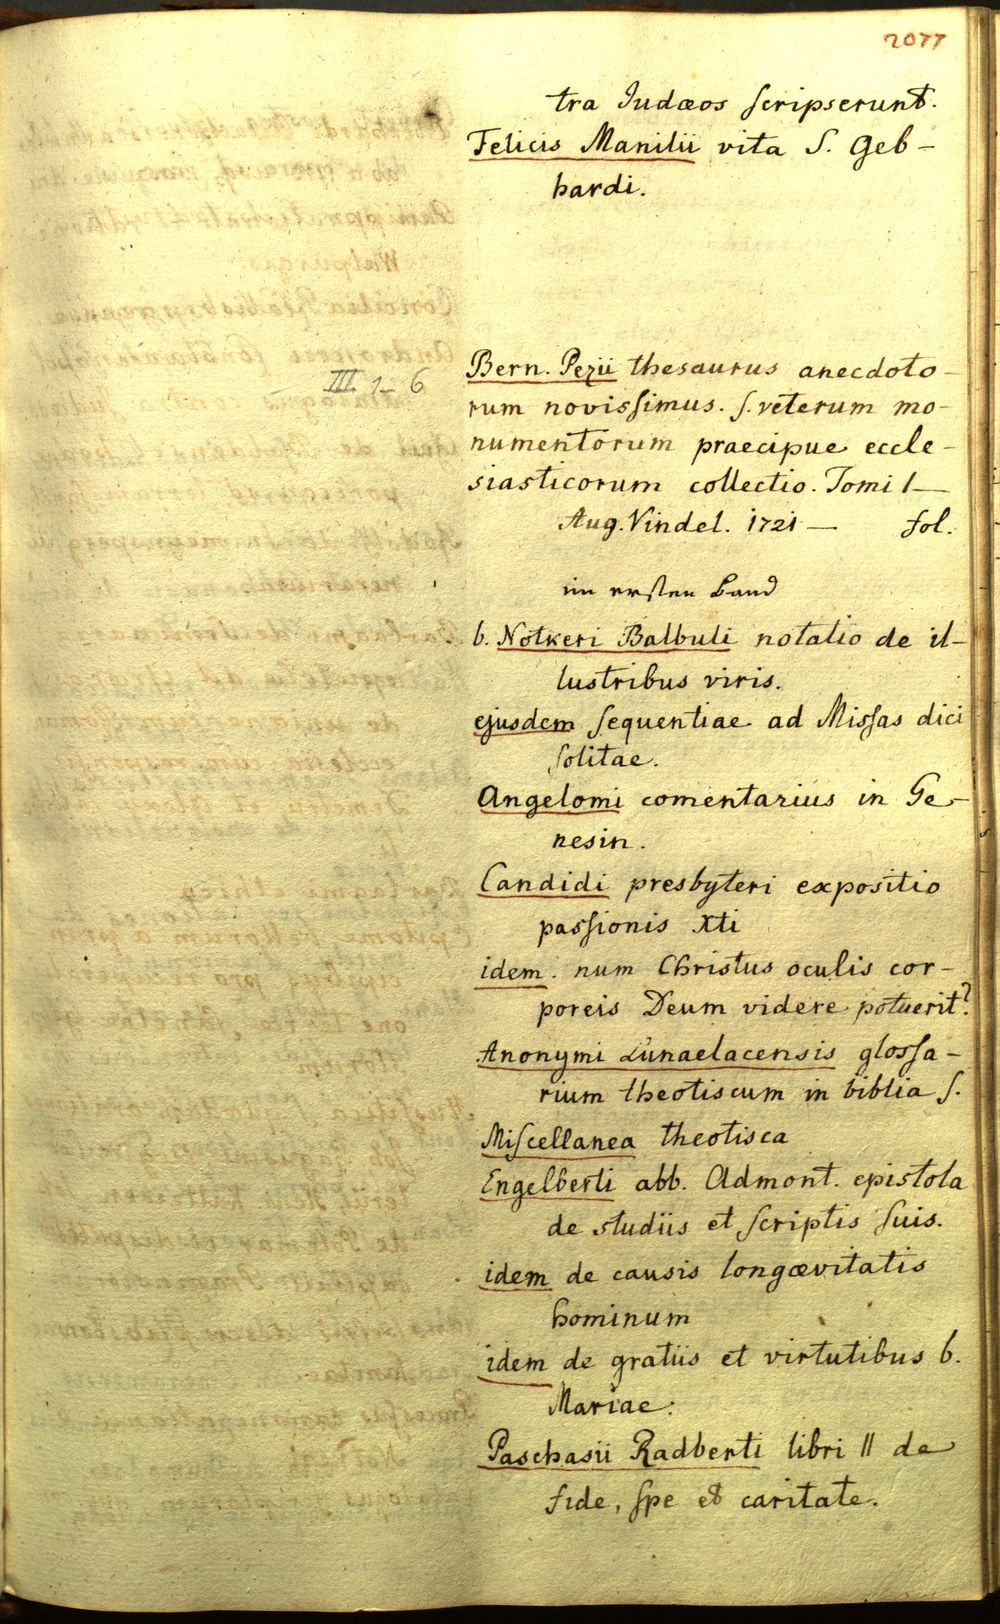 2077
tra Iudæos scripserunt.
Felicis Manilii vita S. Geb-
hardi.
III 1-6
Bern. Pezii thesaurus anecdoto-
rum novissimus. s. veterum mo-
numentorum praecipue eccle-
siasticorum collectio. Tomi I —
Aug. Vindel. 1721 — fol.
im ersten Band
b. Notkeri Balbuli notatio de il-
lustribus viris.
ejusdem sequentiae ad Missas dici
solitae.
Angelomi comentarius in Ge-
nesin.
Candidi presbyteri expositio
passionis Xti
idem. num Christus oculis cor-
poreis Deum videre potuerit?
Anonymi Lunaelacensis glossa-
rium theotiscum in biblia s.
Miscellanea theotisca
Engelberti abb. Admont. epistola
de studiis et scriptis suis.
idem de causis longævitatis
hominum
idem de gratiis et virtutibus b.
Mariae.
Paschasii Radberti libri II de
fide, spe et caritate.